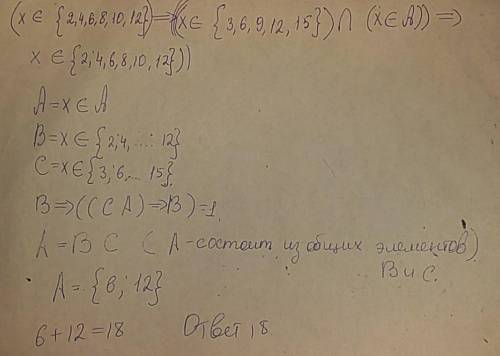 (x ∈ {2,4,6,8,10,12}) ⇒ ((x ∈ {3,6,9,12,15}) ∩ (x ∈ A)) ⇒
x ∈ {2,4,6,8,10,12}))
A = x ∈ A
B = x ∈ {2,4,...: 12}
C = x ∈ {3,6,... 15}
B ⇒ (((C A) ⇒ B) = 1
A = B C ( A - состоит из общих элементов)
B и C.
A = {6; 12}
6 + 12 = 18 Ответ 18.